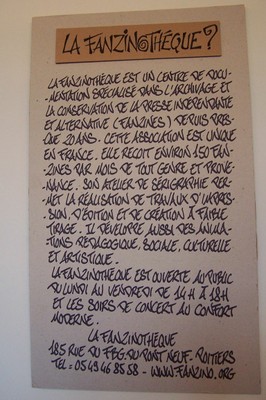 LA FANZINOTHÈQUE ?
LA FANZINOTHÈQUE EST UN CENTRE DE DOCU-
-MENTATION SPÉCIALISÉ DANS L'ARCHIVAGE ET
LA CONSERVATION DE LA PRESSE INDÉPENDANTE
ET ALTERNATIVE (FANZINES) DEPUIS PRES-
QUE 20 ANS. CETTE ASSOCIATION EST UNIQUE
EN FRANCE. ELLE REÇOIT ENVIRON 150 FAN-
ZINES PAR MOIS DE TOUT GENRE ET PROVE-
NANCE. SON ATELIER DE SÉRIGRAPHIE PER-
MET LA RÉALISATION DE TRAVAUX D'IMPRES-
SION, D'ÉDITION ET DE CRÉATION À FAIBLE
TIRAGE. IL DÉVELOPPE AUSSI DES ANIMA-
TIONS PÉDAGOGIQUE, SOCIALE, CULTURELLE
ET ARTISTIQUE.
LA FANZINOTHÈQUE EST OUVERTE AU PUBLIC
DU LUNDI AU VENDREDI DE 14H À 18H
ET LES SOIRS DE CONCERT AU CONFORT
MODERNE.
LA FANZINOTHÈQUE
185 RUE DU FBG. DU PONT NEUF. POITIERS
TEL = 05 49 46 85 58 - WWW.FANZINO.ORG